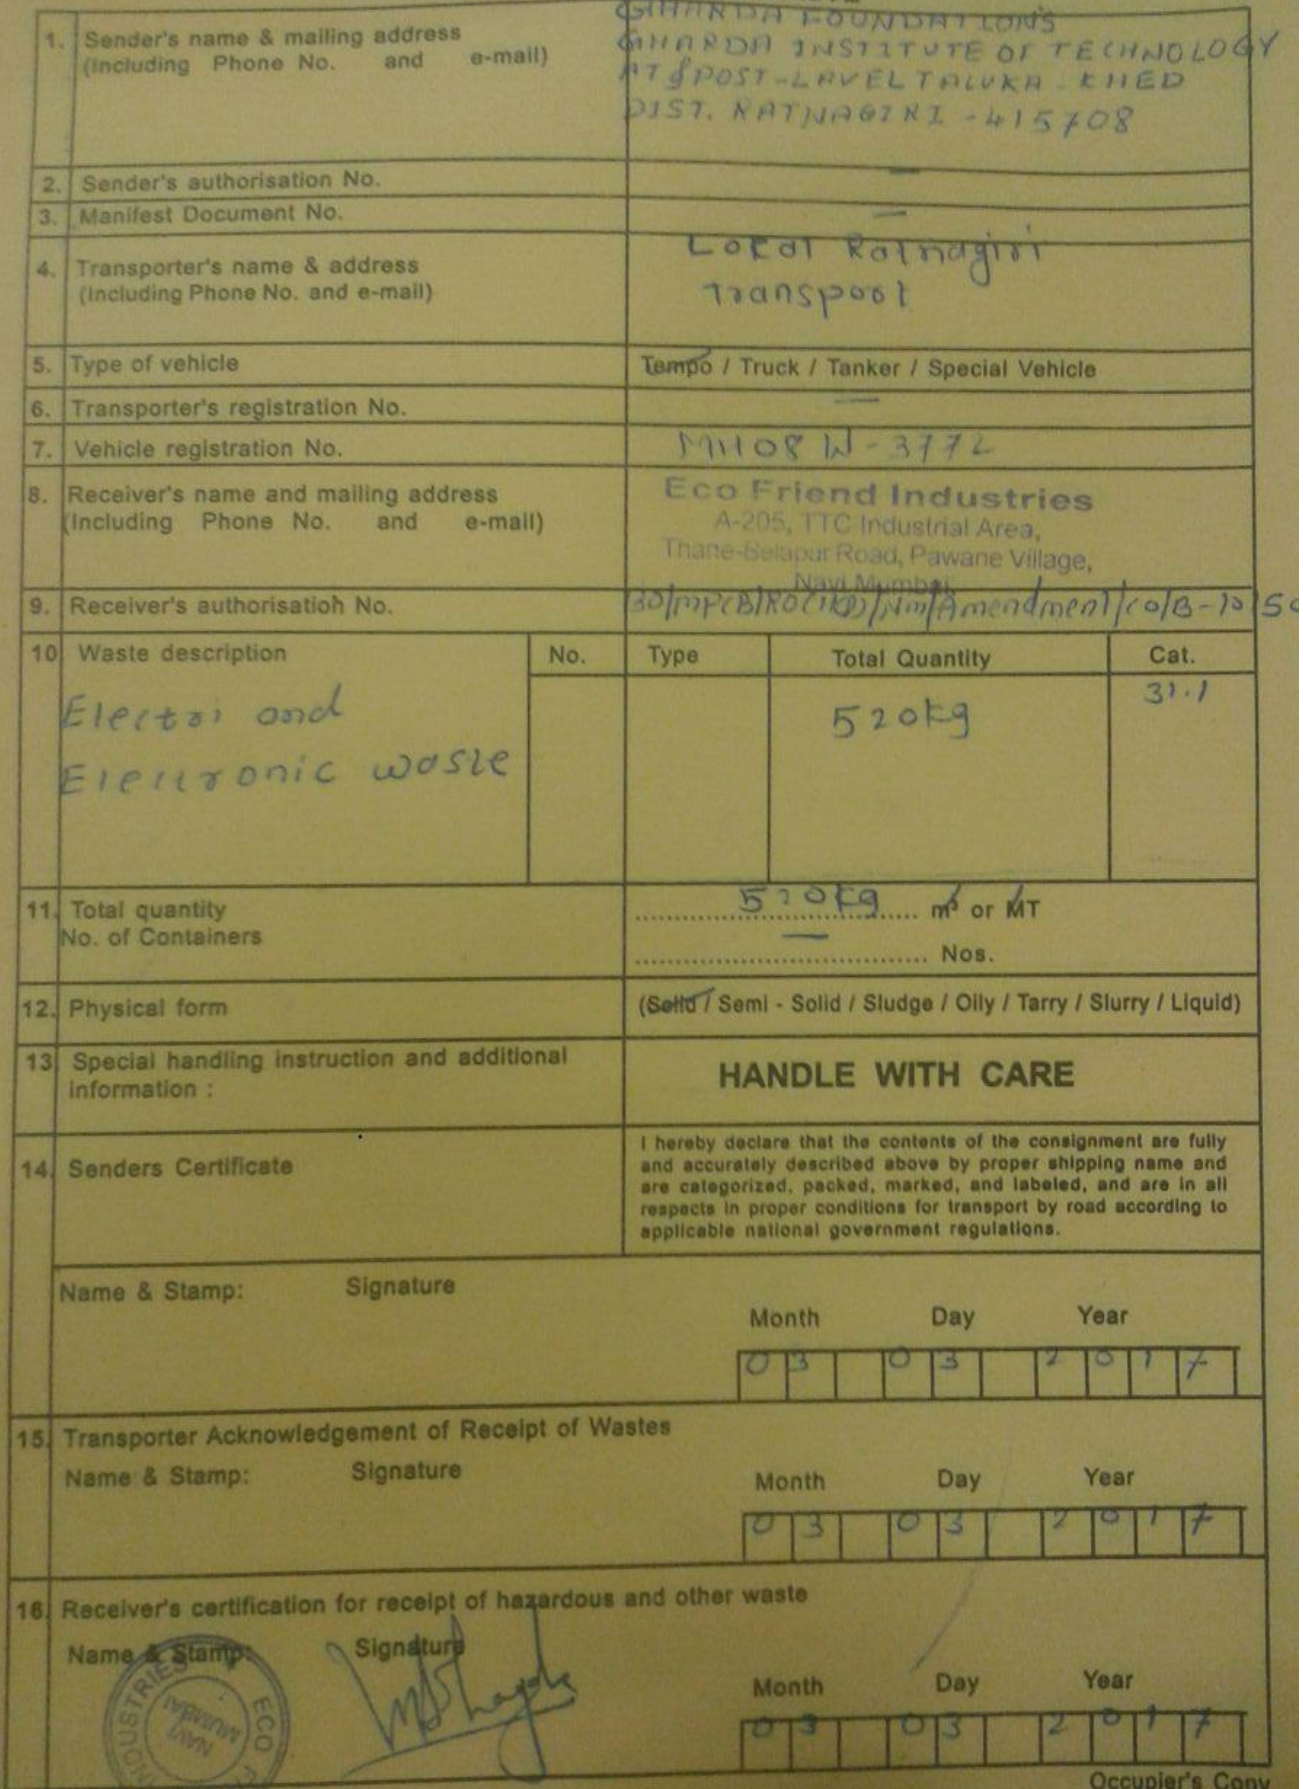 GHARDA FOUNDATIONS
1. Sender's name & mailing address
(Including Phone No. and e-mail)
GHARDA INSTITUTE OF TECHNOLOGY
AT & POST-LAVEL TALUKA-KHED
DIST. RATNAGIRI-415708
2. Sender's authorisation No. —
3. Manifest Document No. —
4. Transporter's name & address
(Including Phone No. and e-mail)
Local Ratnagiri
Transport
5. Type of vehicle Tempo / Truck / Tanker / Special Vehicle
6. Transporter's registration No. —
7. Vehicle registration No. MH08 W-3772
8. Receiver's name and mailing address
(Including Phone No. and e-mail)
Eco Friend Industries
A-205, TTC Industrial Area,
Thane-Belapur Road, Pawane Village,
Navi Mumbai
9. Receiver's authorisation No. /Amendment/CO/B-
10 Waste description No. Type Total Quantity Cat.
Electri and 520kg 31.1
Electronic waste
11. Total quantity 520kg m³ or MT
No. of Containers — Nos.
12. Physical form (Solid / Semi - Solid / Sludge / Oily / Tarry / Slurry / Liquid)
13 Special handling instruction and additional
information :
HANDLE WITH CARE
14. Senders Certificate
I hereby declare that the contents of the consignment are fully
and accurately described above by proper shipping name and
are categorized, packed, marked, and labeled, and are in all
respects in proper conditions for transport by road according to
applicable national government regulations.
Name & Stamp: Signature
Month Day Year
03 03 2017
15. Transporter Acknowledgement of Receipt of Wastes
Name & Stamp: Signature
Month Day Year
03 03 2017
16. Receiver's certification for receipt of hazardous and other waste
Name & Stamp: Signature
ECO
INDUSTRIES
NAVI
MUMBAI
Month Day Year
03 03 2017
Occupier's Copy